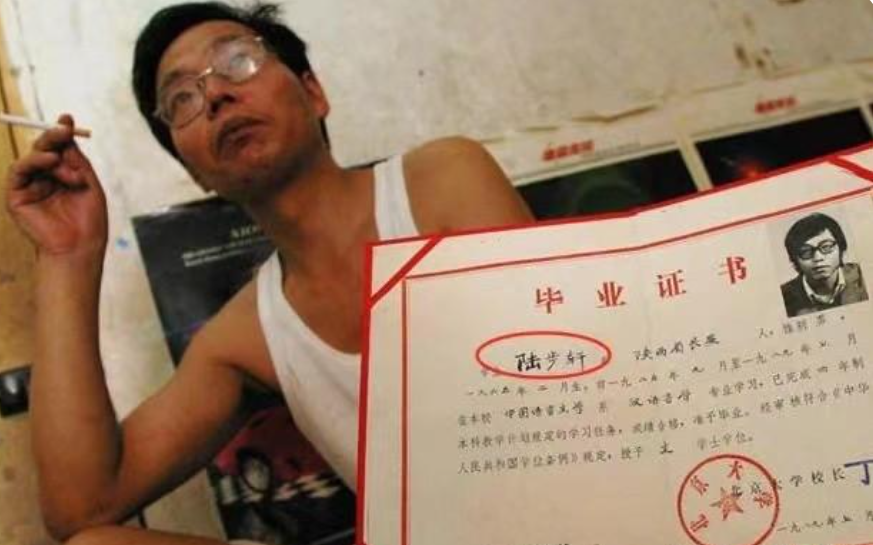 毕业证书
陆步轩 陕西省长安 人,
一九六五年 二 月生, 自一九八五年 九 月至一九八九年 七 月
在本校 中国语言文学 系 汉语言学 专业学习, 已完成 四 年制
本科教学计划规定的学习任务, 成绩合格, 准予毕业。经审核符合《中华
人民共和国学位条例》规定, 授予 文 学士学位。
北京大学校长 丁
北京大学
一九八九年 七 月